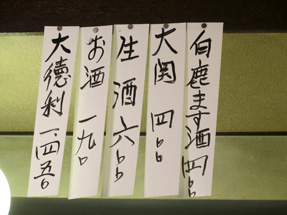 白鹿ます酒 四〇〇
大関 四〇〇
生酒 六〇〇
お酒 一九〇
大徳利 一、四五〇